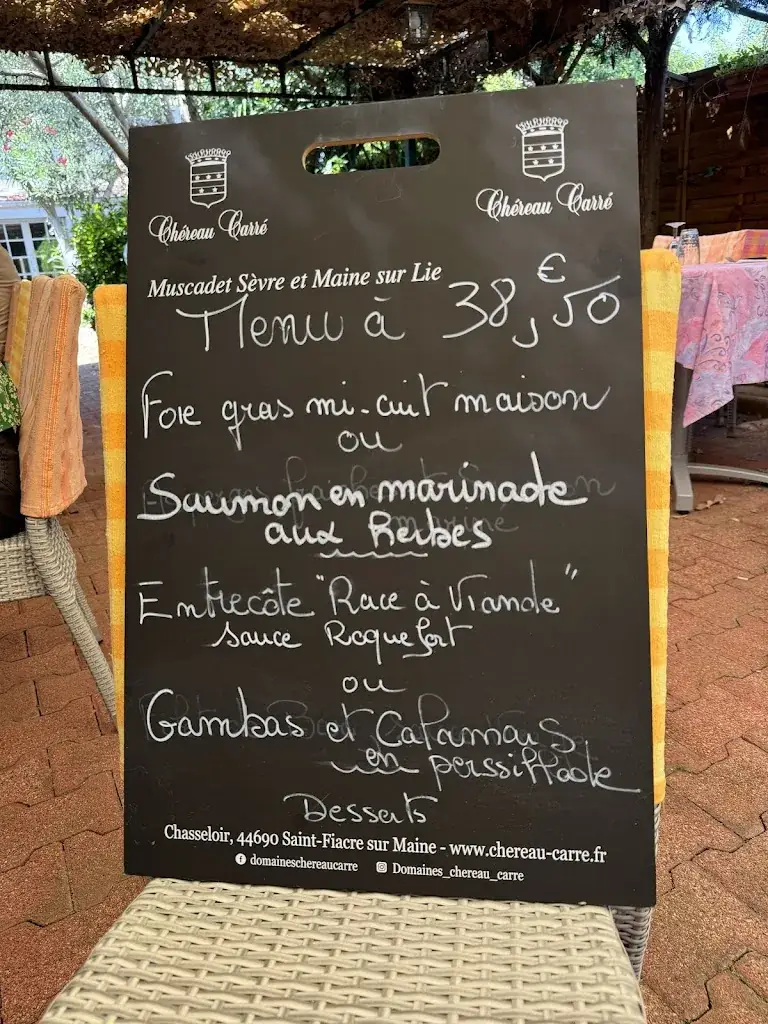 Chéreau Carré
Chéreau Carré
Muscadet Sèvre et Maine sur Lie
Menu à 38,50 €
Foie gras mi-cuit maison
ou
Saumon en marinade
aux Herbes
Entrecôte "Race à Viande"
sauce Roquefort
ou
Gambas et Calamars
en perssillade
Desserts
Chasseloir, 44690 Saint-Fiacre sur Maine - www.chereau-carre.fr
domaineschereaucarre Domaines_chereau_carre